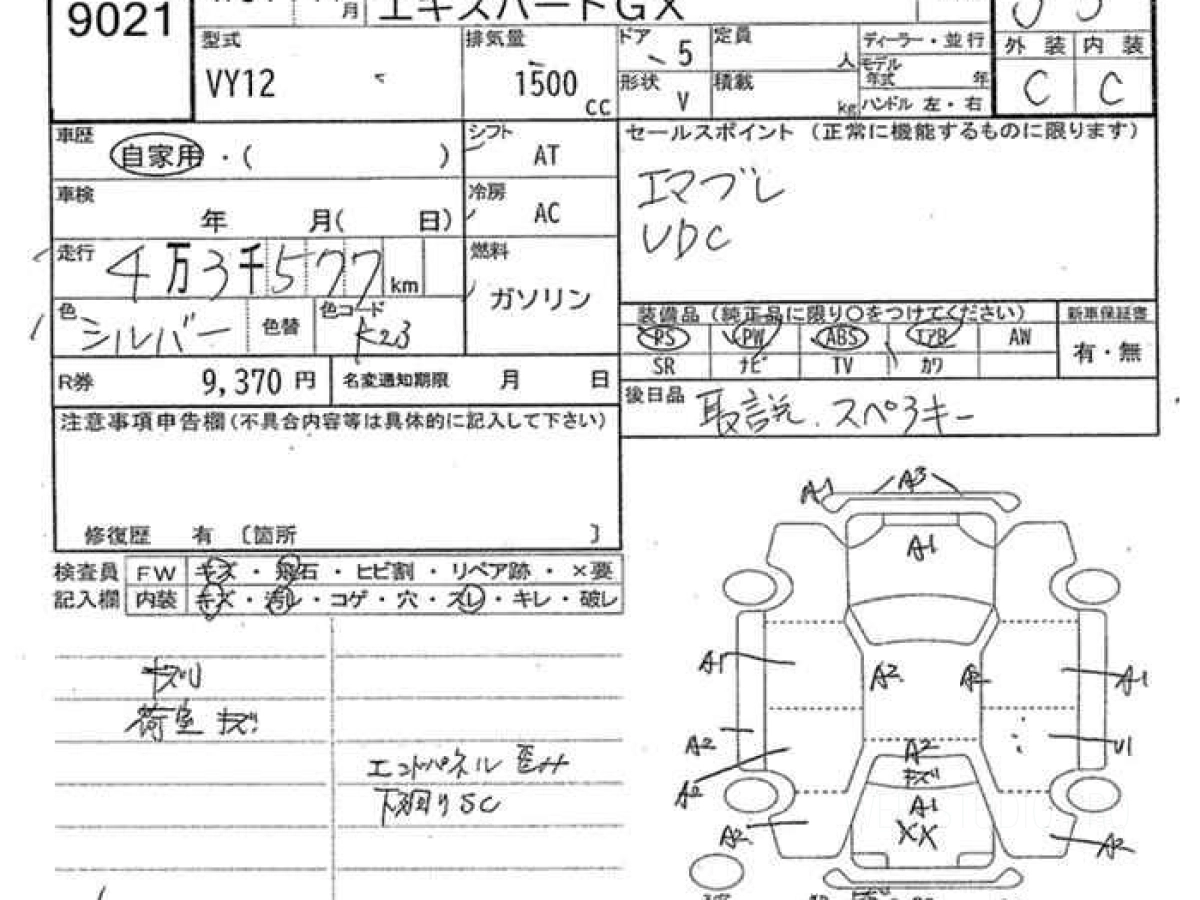 9021
月
エキスパートGX
型式
VY12
排気量
1500
cc
ドア
5
形状
V
定員
人
積載
kg
ディーラー・並行
モデル年式
年
ハンドル 左・右
外 装 内 装
C C
車歴
自家用・( )
シフト
AT
車検
年 月( 日)
冷房
AC
走行
4万3千577km
燃料
ガソリン
色
シルバー
色替
色コード
K23
R券
9,370 円
名変通知期限 月 日
セールスポイント (正常に機能するものに限ります)
エマブレ
VDC
装備品 (純正品に限り○をつけてください)
新車保証書
PS PW ABS エアB AW
SR ナビ TV カワ
有・無
後日品
取説、スペアキー
注意事項申告欄(不具合内容等は具体的に記入して下さい)
修復歴 有 〔箇所 〕
検査員 FW キズ・飛石・ヒビ割・リペア跡・×要
記入欄 内装 キズ・汚レ・コゲ・穴・スレ・キレ・破レ
荷室 キズ
エンドパネル 歪み
下廻りSC
A1
A3
A1
A1
A2
A2
A1
A2
U1
A2
A2
キズ
A1
XX
A2
A2